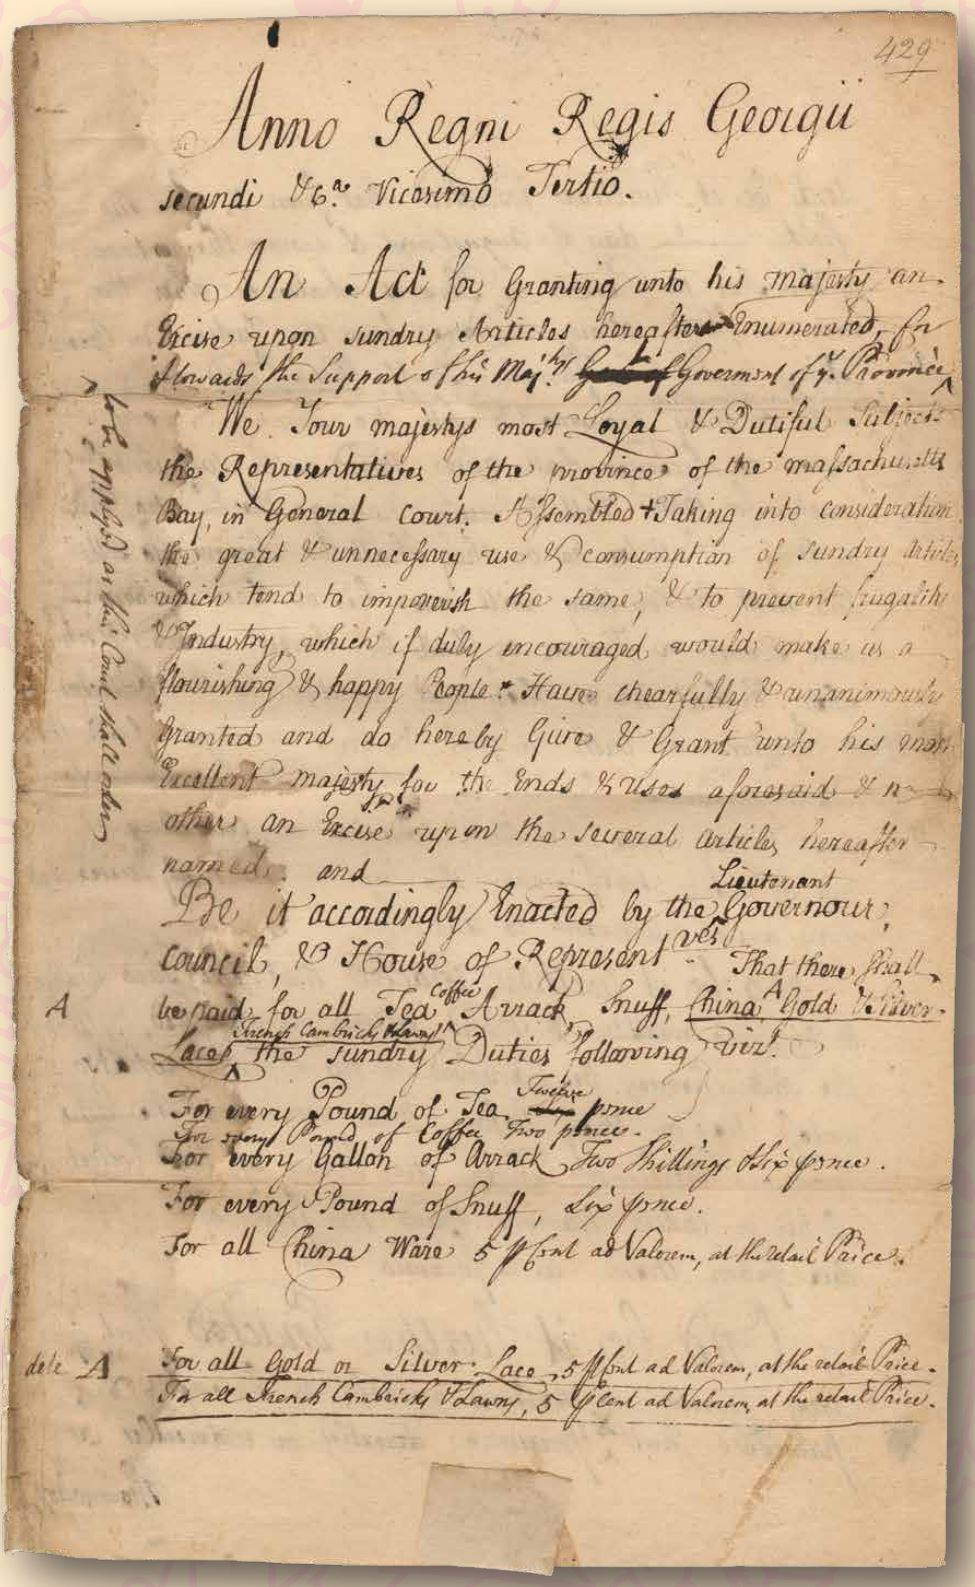 429
Anno Regni Regis Georgii
secundi &ca. Vicesimo Tertio.
An Act for Granting unto his majesty an
Excise upon sundry Articles hereafter Enumerated, for
& towards the Support of his Maj.tys Goverment of ye. Province
to be applyed as this Court shall order
We Your majestys most Loyal & Dutiful Subjects
the Representatives of the province of the massachusetts
Bay, in General Court. Assembled + Taking into consideration
the great & unnecessary use & consumption of sundry Articles
which tend to impoverish the same, & to prevent frugality
& Industry, which if duly encouraged would make us a
flourishing & happy People + Have chearfully & unanimously
Granted and do hereby Give & Grant unto his most
Excellent majesty for the Ends & Uses aforesaid & n
other an Excise upon the several Articles hereafter
named. and
Lieutenant
Be it accordingly Enacted by the Governour,
Council, & House of Representves. That there shall
Coffee A
A be paid for all Tea Arrack, Snuff, China, Gold & Silver
French Cambricks & Lawns
Lace, the sundry Duties following vizt.
Twelve
For every Pound of Tea pence
For every Pound of Coffee Two pence.
For every Gallon of Arrack Two Shillings & Six pence.
For every Pound of Snuff, Six pence.
For all China Ware 5 p Cent ad Valorem, at the retail Price.
dele A For all Gold or Silver Lace, 5 p Cent ad Valorem, at the retail Price.
For all French Cambricks & Lawns, 5 p Cent ad Valorem, at the retail Price.